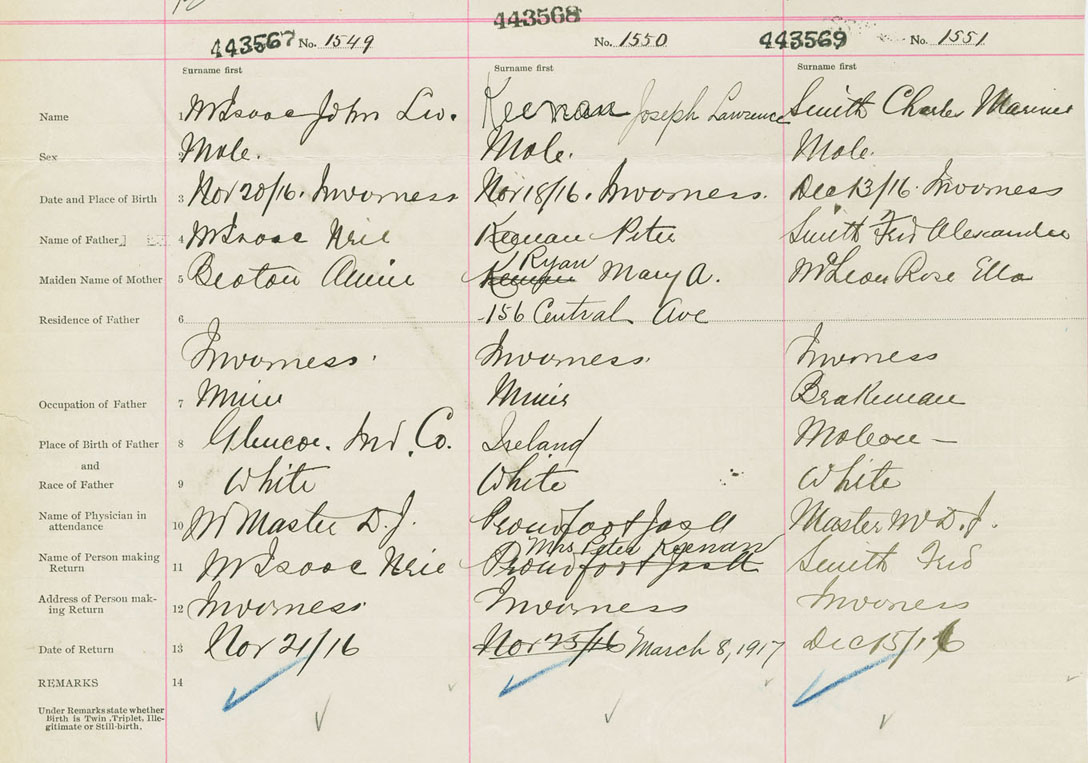 443567 No. 1549
443568 No. 1550
443569 No. 1551
Surname first Surname first Surname first
Name 1 McIsaac John Keenan Joseph Lawrence Smith Charles
Sex Male. Male. Male.
Date and Place of Birth 3 Nov 20/16. Inverness Nov 18/16. Inverness. Dec 13/16. Inverness
Name of Father 4 McIsaac Neil Keenan Peter Smith Fred Alexander
Ryan
Maiden Name of Mother 5 Beaton Annie Mary A. McLean Rose Ella
Residence of Father 6 156 Central Ave
Inverness. Inverness. Inverness
Occupation of Father 7 Miner Miner Brakeman
Place of Birth of Father 8 Glencoe. Inv. Co. Ireland
and
Race of Father 9 White White White
Name of Physician in
attendance 10 McMaster D.J. Proudfoot Jas A McMaster D.J.
Mrs Peter Keenan
Name of Person making
Return 11 McIsaac Neil Proudfoot Jas A Smith Fred
Address of Person mak-
ing Return 12 Inverness. Inverness Inverness
Date of Return 13 Nov 21/16 Nov 25/16 March 8, 1917 Dec 15/16
REMARKS 14
Under Remarks state whether
Birth is Twin, Triplet, Ille-
gitimate or Still-birth.